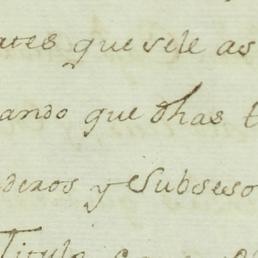 ates que se le as
ando que dhas t
deros y Subseso
Titulo